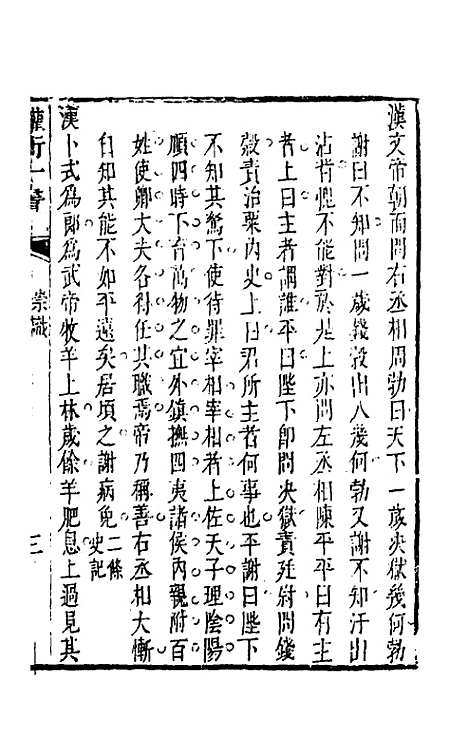 漢文帝朝而問右丞相周勃曰天下一歲決獄幾何勃
謝曰不知問一歲錢穀出入幾何勃又謝不知汗出
沾背愧不能對於是上亦問左丞相陳平平曰有主
者上曰主者謂誰平曰陛下即問決獄責廷尉問錢
穀責治粟內史上曰君所主者何事也平謝曰陛下
不知其駑下使待罪宰相宰相者上佐天子理陰陽
順四時下育萬物之宜外鎮撫四夷諸侯內親附百
姓使卿大夫各得任其職焉帝乃稱善右丞相大慚
自知其能不如平遠矣居頃之謝病免二條史記
漢卜式為郎為武帝牧羊上林歲餘羊肥息上過見其
崇識
三